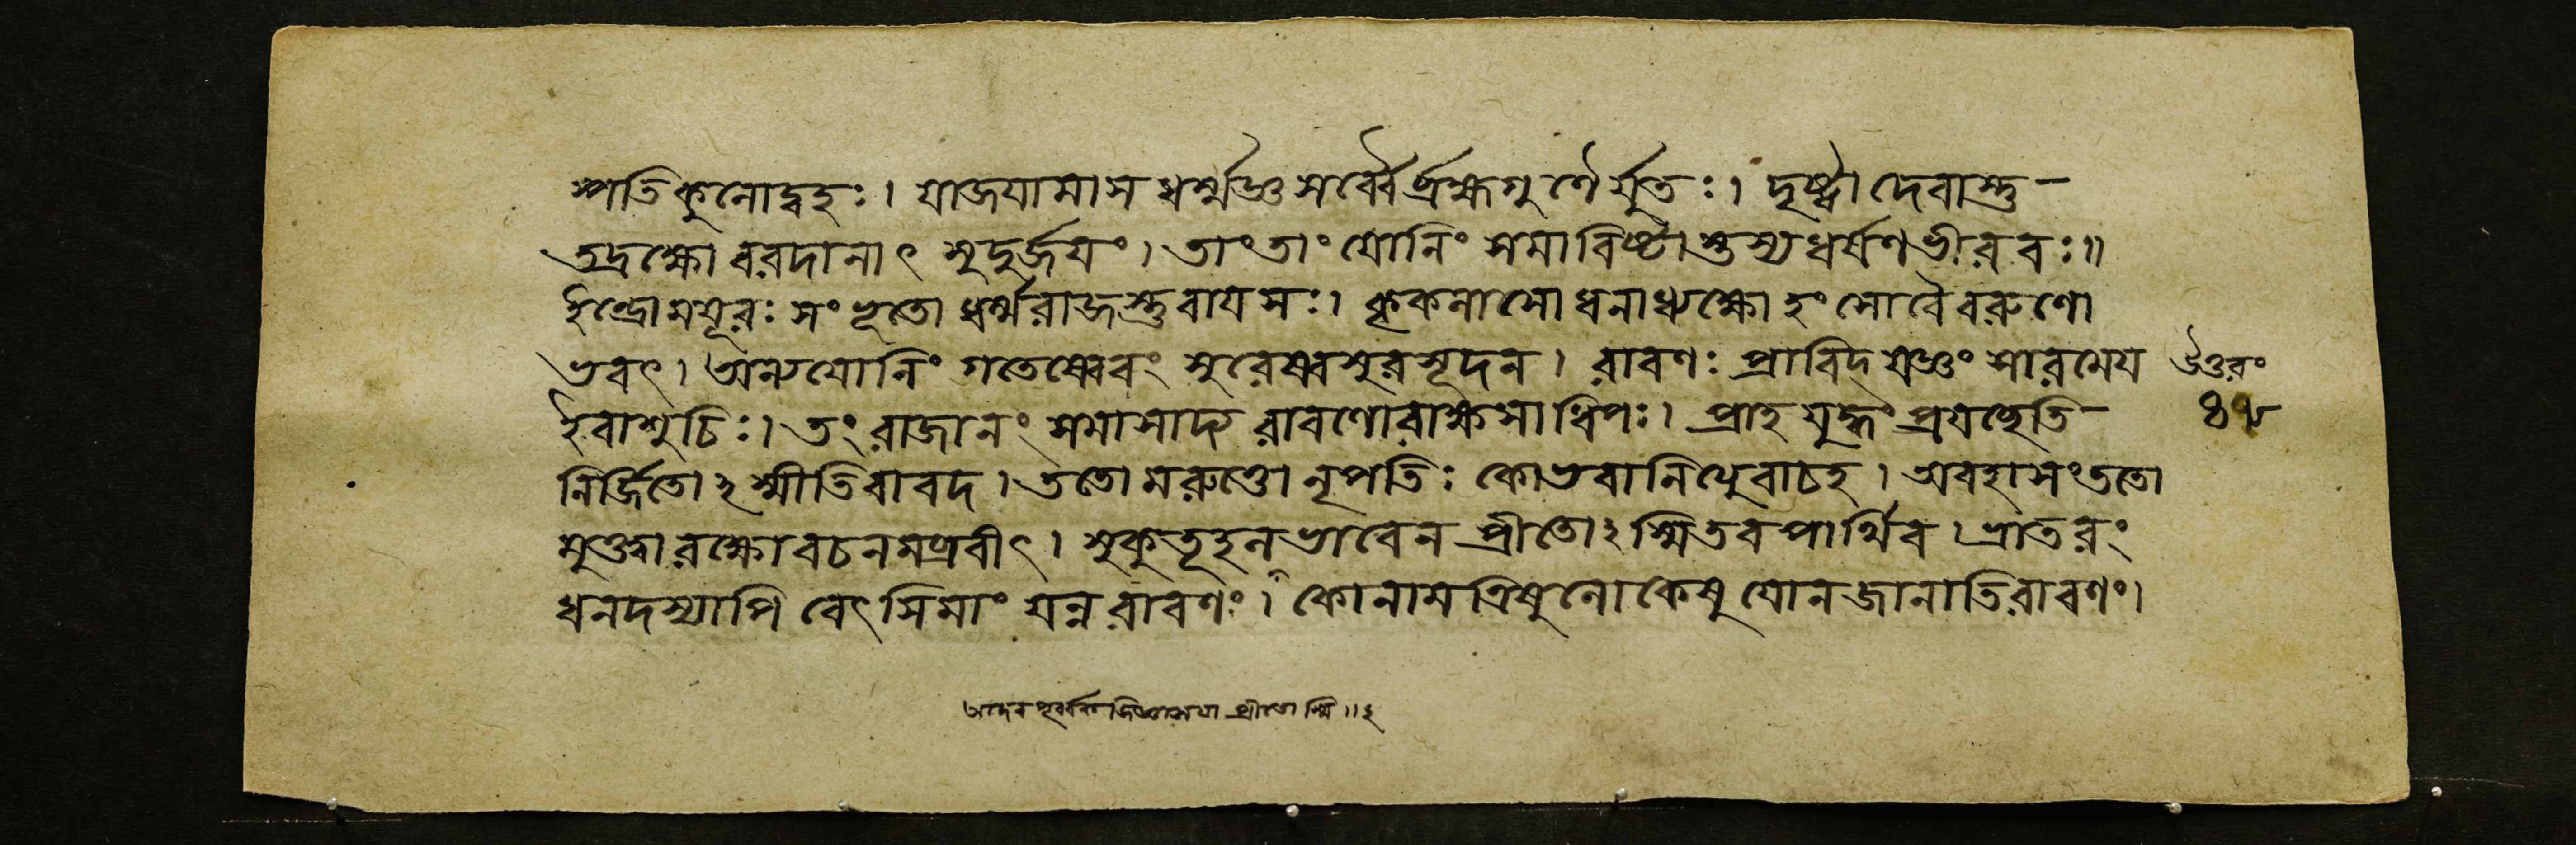 স্পতিকুলোদ্বহঃ। যাজযামাস ধর্ম্মজ্ঞঃ সর্ব্বৈর্ব্রহ্মগুণৈর্যুতঃ। দৃষ্ট্বা দেবাস্তু-
তদ্রক্ষো বরদানাৎ সুদুর্জ্জযং। তাং তাং যোনিং সমাবিষ্টাস্তস্য ধর্ষণভীরবঃ॥
ইন্দ্রো মযূরঃ সংভূতো ধর্ম্মরাজস্তু বাযসঃ। কৃকলাসো ধনাধ্যক্ষো হংসো বৈ বরুণো
ভবৎ। অন্যযোনিং গতেষ্বেবং সুরেষ্বসুরসূদন। রাবণঃ প্রাবিদ যজ্ঞং সারমেয উত্তরং
ইবাশুচিঃ। তং রাজানং সমাসাদ্য রাবণো রাক্ষসাধিপঃ। প্রাহ যুদ্ধং প্রযচ্ছেতি-
নির্জ্জিতোঽস্মীতি বাবদ। ততো মরুত্তো নৃপতিঃ কো ভবানিত্যুবাচ হ। অবহাসং ততো
মুক্ত্বা রক্ষো বচনমব্রবীৎ। সুকুতূহলভাবেন প্রীতোঽস্মি তব পার্থিব। ভ্রাতরং
ধনদস্যাপি বেৎসি মাং যন্ন রাবণং। কো নাম ত্রিষু লোকেষু যো ন জানাতি রাবণং।